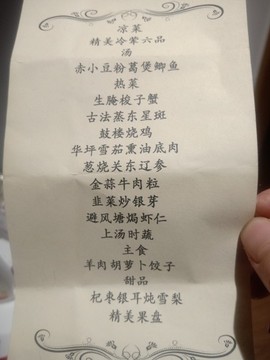 凉菜
精美冷荤六品
汤
赤小豆粉葛煲鲫鱼
热菜
生腌梭子蟹
古法蒸东星斑
鼓楼烧鸡
华坪雪茄熏油底肉
葱烧关东辽参
金蒜牛肉粒
韭菜炒银芽
避风塘焗虾仁
上汤时蔬
主食
羊肉胡萝卜饺子
甜品
杞枣银耳炖雪梨
精美果盘